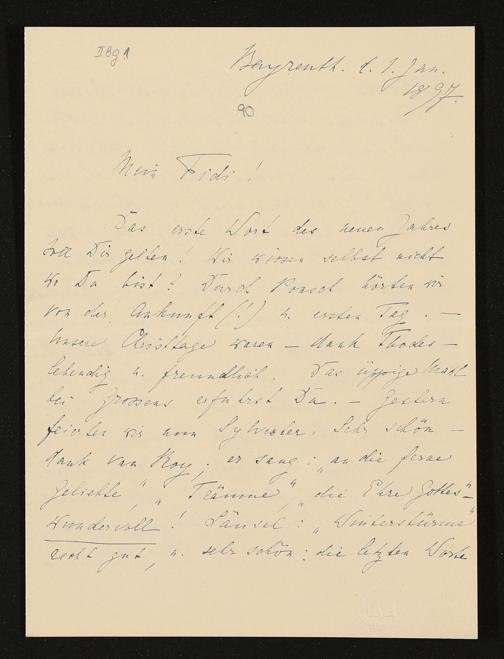 II B g 1
Bayreuth. d. 1. Jan.
1897.
90
Mein Fidi!
Das erste Wort des neuen Jahres
soll Dir gelten! Wir wissen selbst nicht
wo Du bist? Durch Ponsch hörten wir
von der Ankunft (!) u. ersten Tag. —
Unsere Christtage waren — dank Thodes —
lebendig u. freundlich. Das üppige Mahl
bei Grossens erfuhrst Du. — Gestern
feierten wir nun Sylvester. Sehr schön —
dank van Rooy; er sang: „an die ferne
Geliebte", „Träume", „die Ehre Gottes" —
wundervoll! : „Winterstürme"
recht gut, u. sehr schön: die letzten Worte